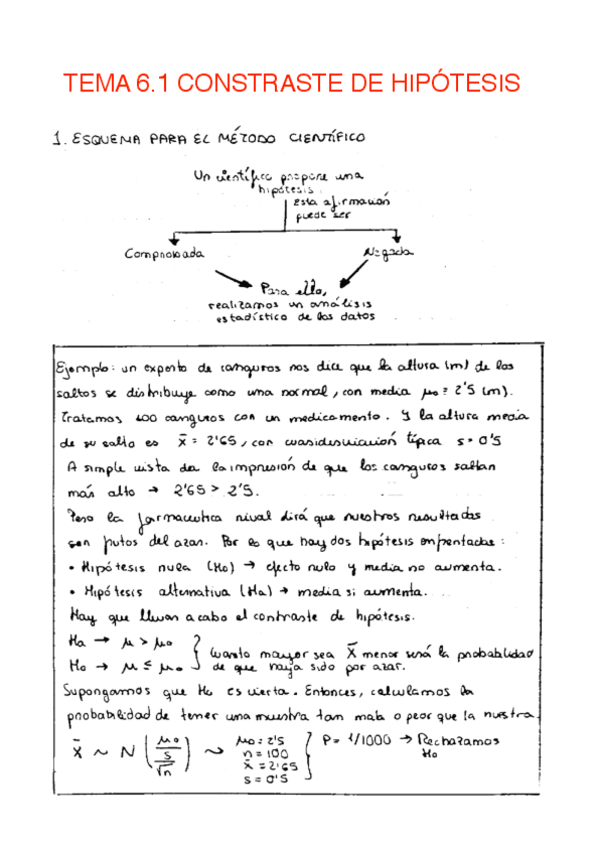 TEMA 6.1 CONSTRASTE DE HIPÓTESIS
1. ESQUEMA PARA EL MÉTODO CIENTÍFICO
Un científico propone una
hipótesis.
Esta afirmación
puede ser
Comprobada
Negada
Para ello,
realizamos un análisis
estadístico de los datos
Ejemplo: un experto de canguros nos dice que la altura (m) de los
saltos se distribuye como una normal, con media μ₀ = 2'5 (m).
Tratamos 100 canguros con un medicamento. Y la altura media
de su salto es x̄ = 2'65, con cuasidesviación típica s = 0'5
A simple vista da la impresión de que los canguros saltan
más alto → 2'65 > 2'5.
Pero la farmaceutica rival dirá que nuestros resultados
son frutos del azar. Por lo que hay dos hipótesis enfrentadas:
• Hipótesis nula (H₀) → efecto nulo y media no aumenta.
• Hipótesis alternativa (Ha) → media si aumenta.
Hay que llevar a cabo el contraste de hipótesis.
Ha → μ > μ₀
H₀ → μ ≤ μ₀
Cuanto mayor sea x̄ menor será la probabilidad
de que haya sido por azar.
Supongamos que H₀ es cierta. Entonces, calculamos la
probabilidad de tener una muestra tan mala o peor que la nuestra
x̄ ~ N (μ₀ / s / √n) ~
μ₀ = 2'5
n = 100
x̄ = 2'65
s = 0'5
P = 1/1000 → Rechazamos
H₀